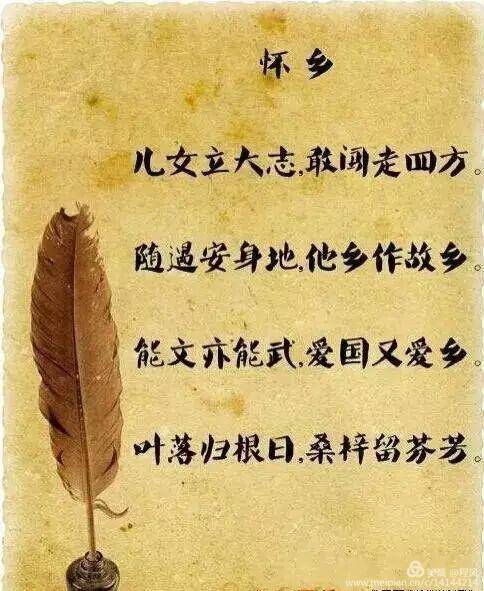 怀乡
儿女立大志,敢闯走四方。
随遇安身地,他乡作故乡。
能文亦能武,爱国又爱乡。
叶落归根日,桑梓留芬芳。
www.meipian.cn/14144214